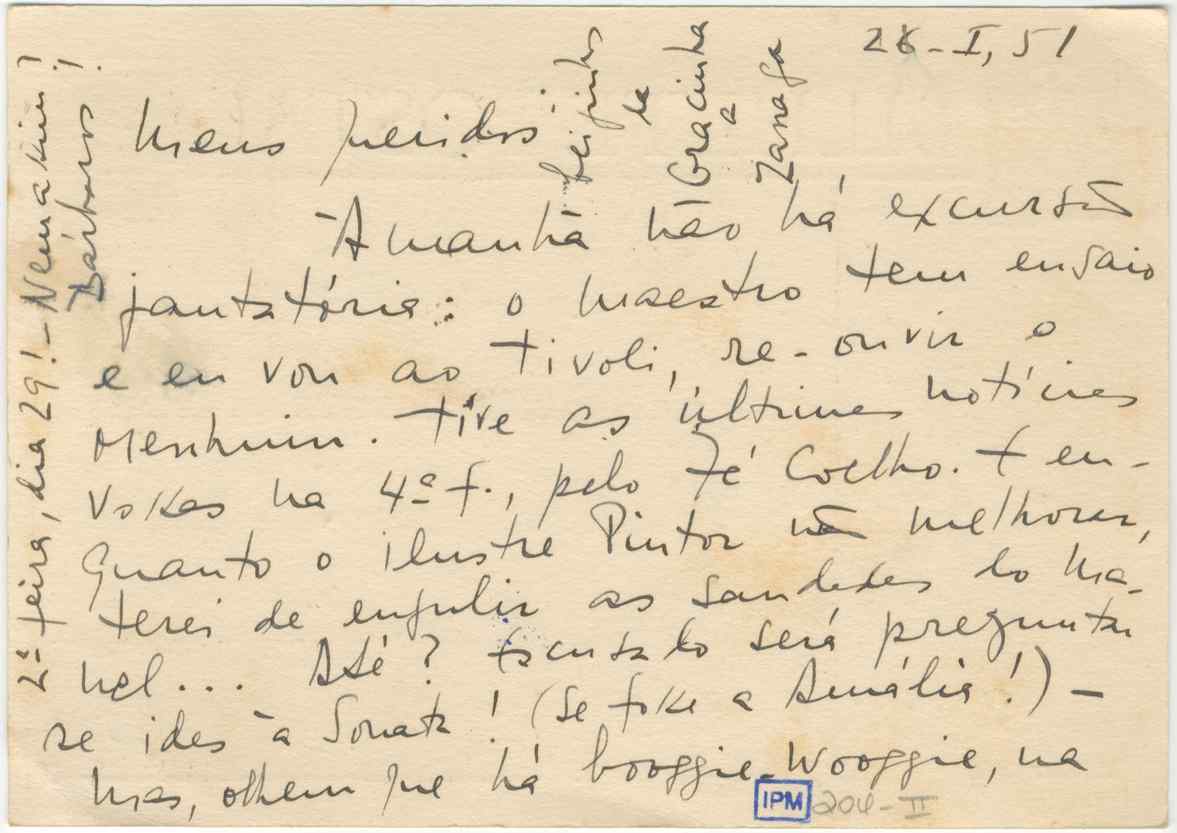 28-I, 51
Meus queridos:
Amanhã não há excursão
jantatória: o maestro tem ensaio
e eu vou ao Tivoli, re-ouvir o
Menhuin. Tive as últimas notícias
vossas na 4ª f., pelo Zé Coelho. E en-
quanto o ilustre Pintor não melhorar,
terei de engulir as saudades do Ma-
nel... Até? Escusado será preguntar
se ides à Sonata! (se fosse a Amália!) –
mas, olhem que há booggie-wooggie, na
2ª feira, dia 29! – Nem assim?
Bárbaros!
beijinhos
da
Gracinha
a
Zanaga
IPM
204-II